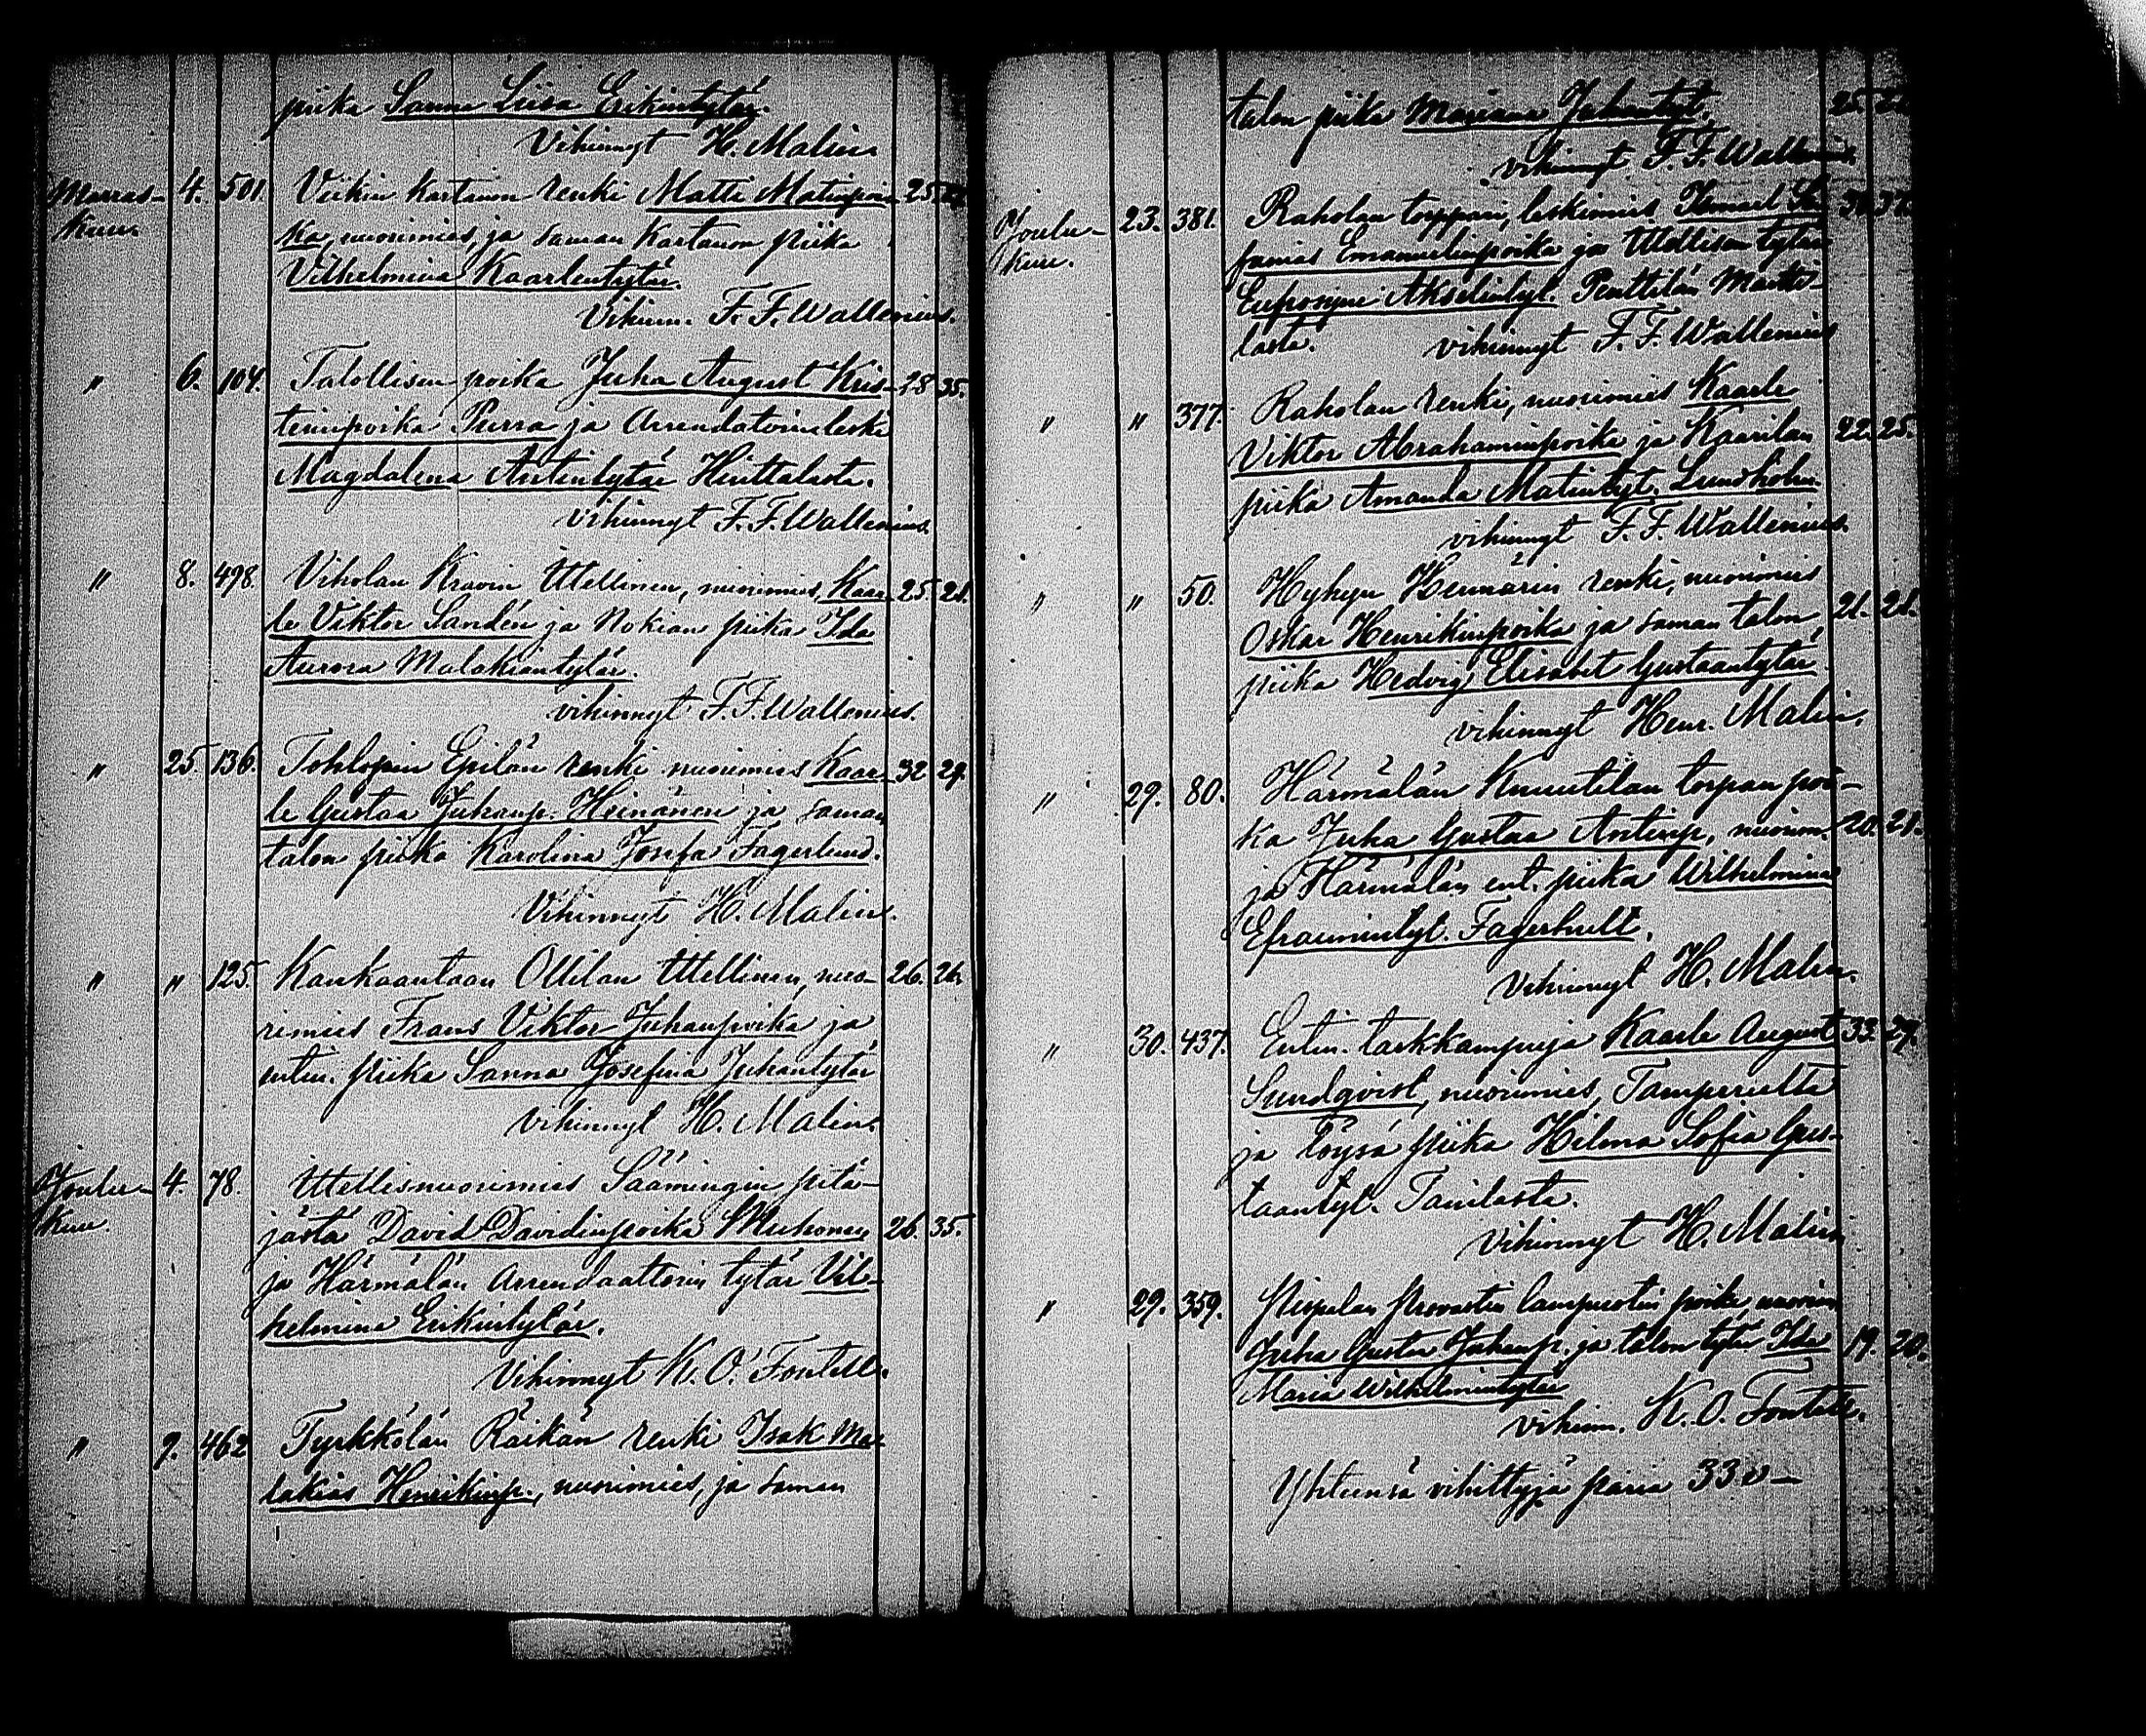 piika Sanna Liisa Erikintytär.
Vihinnyt H. Malin.
Marras- 4. 501. Viikin Kartanon renki Matti Matinpoi- 25
Kuu. ka, nuorimies, ja saman Kartanon piika
Vilhelmina Kaarlentytär.
Vihinn. F. F. Wallenius.
" 6. 104. Talollisen poika Juha August Kris- 28 35.
teninpoika Purra ja Arrendatorinleski
Magdalena Antintytär Hinttalasta.
vihinnyt F. F. Wallenius.
" 8. 498. Viholan Kravin Itellinen, nuorimies, Kaar- 25 21.
le Viktor Sandén ja Nokian piika Ida
Aurora Malakiantytär.
vihinnyt F. F. Wallenius.
" 25. 136. Tohlopin Epilän renki nuorimies Kaar- 32 29.
le Gustaa Juhanp. Heinänen ja saman
talon piika Karolina Josefa Fagerlund.
Vihinnyt H. Malin.
" " 125. Kankaantaan Ollilan Itellinen, nuo- 26. 26.
rimies Frans Viktor Juhanpoika ja
entin. piika Sanna Josefina Juhantytär
vihinnyt H. Malin.
Joulu- 4. 78. Itellisnuorimies Säämingin pitä-
Kuu. jästä David Davidinpoika Muhonen 26. 35.
ja Härmälän Arrendaattorin tytär Vil-
helmina Erikintytär.
Vihinnyt K. O. Fontell.
" 9. 462 Tyrkkölän Räikän renki Isak Ma-
lakias Henrikinp., nuorimies, ja saman
talon piika Mariana Juhantyt. 25. 22
vihinnyt F. F. Wallenius.
Joulu- 23. 381. Raholan torppari, leskimies, 37.
kuu. Emanuelinpoika ja Itellisen tytär
Eufrosyne Akselintyt. Penttilän Martti-
lasta. vihinnyt F. F. Wallenius
" " 377. Raholan renki, nuorimies Kaarle
Viktor Abrahaminpoika ja Kaarilan 22. 25.
piika Amanda Matintyt. Lundholm.
vihinnyt F. F. Wallenius.
" " 50. Hyhyn Heinärin renki, nuorimies
Oskar Henrikinpoika ja saman talon 21. 21.
piika Hedvig Elisabet Gustaantytär
vihinnyt Henr. Malin.
" 29. 80. Härmälän Knuutilan torpan poi-
ka Juha Gustaa Antinp., nuorim. 20. 21.
ja Härmälän ent. piika Wilhelmina
Efraimintyt. Fagerhult.
Vihinnyt H. Malin.
" 30. 437. Entin. tarkkampuja Kaarle August 33. 29.
Sundqvist, nuorimies, Tampereelta
ja Löysä piika Hilma Sofia Gus-
taantyt. Tanilasta.
Vihinnyt H. Malin
" 29. 359. Pispalan Provastin lampuotin poika, nuorim.
Juha Gusta Juhanp. ja talon tytär Ida 19. 20.
Maria Wilhelmintytär
vihinn. K. O. Fontell.
Yhteensä vihittyjä paria 33